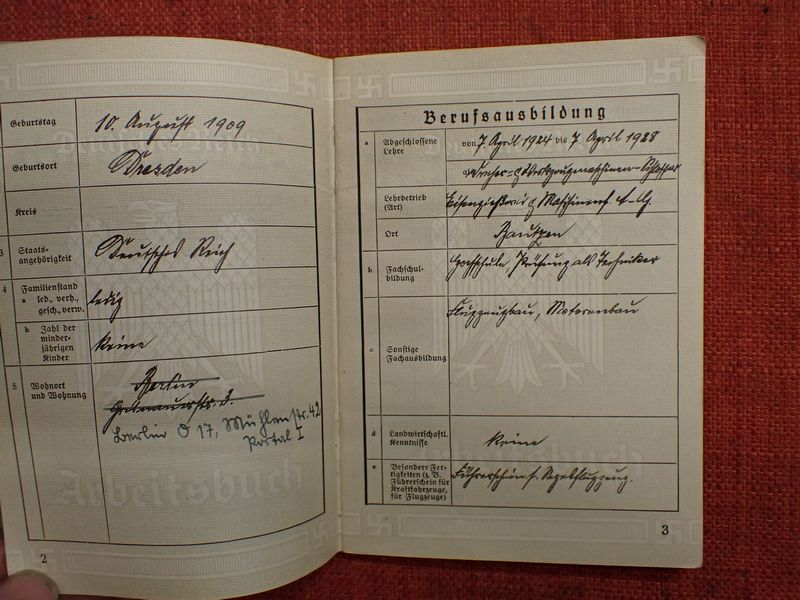 Geburtstag
10. August 1909
Geburtsort
Dresden
Kreis
3 Staats-
angehörigkeit
Deutsches Reich
4 Familienstand
a led., verh.,
gesch., verw.
ledig
b Zahl der
minder-
jährigen
Kinder
keine
5 Wohnort
und Wohnung
Berlin
Grünauerstr. 2.
Berlin O 17, Mühlenstr. 42
Portal I
Arbeitsbuch
2
Berufsausbildung
a Abgeschlossene
Lehre
von 7. April 1924 bis 7. April 1928
Dreher- & Werkzeugmaschinen-Schlosser
Lehrbetrieb
(Art)
Eisengießerei & Maschinenf. A.-G.
Ort
Bautzen
b. Fachschul-
bildung
Hochschule, Prüfung als Techniker
c Sonstige
Fachausbildung
Flugzeugbau, Motorenbau
d Landwirtschaftl.
Kenntnisse
keine
e Besondere Fer-
tigkeiten (z. B.
Führerschein für
Kraftfahrzeuge,
für Flugzeuge)
Führerschein f. Segelflugzeug.
3